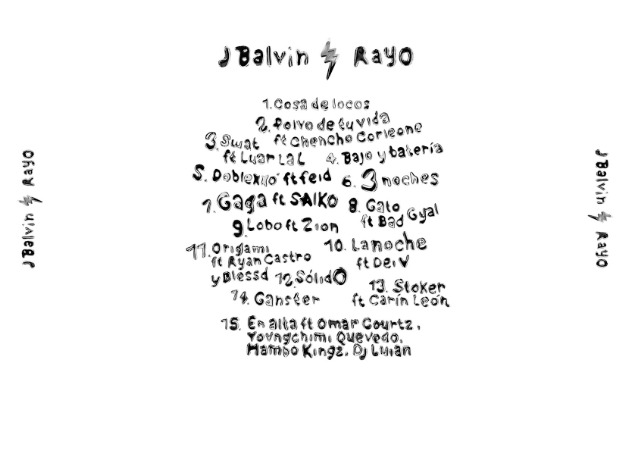 J Balvin Rayo
1. Cosa de locos
2. Polvo de tu vida
ft Chencho Corleone
3 Swat
ft Luar La L
4. Bajo y batería
5. Doblexxó ft feid
6. 3 noches
7. Gaga ft SAIKO
8. Gato
ft Bad Gyal
9. Lobo ft Zion
10. La noche
ft Dei V
11. Origami
ft Ryan Castro
y Blessd
12 Sólido
13. Stoker
ft Carín León
14. Ganster
15. En alta ft Omar Courtz,
Youngchimi, Quevedo,
Mambo Kingz, Dj Luian
J Balvin Rayo
J Balvin Rayo